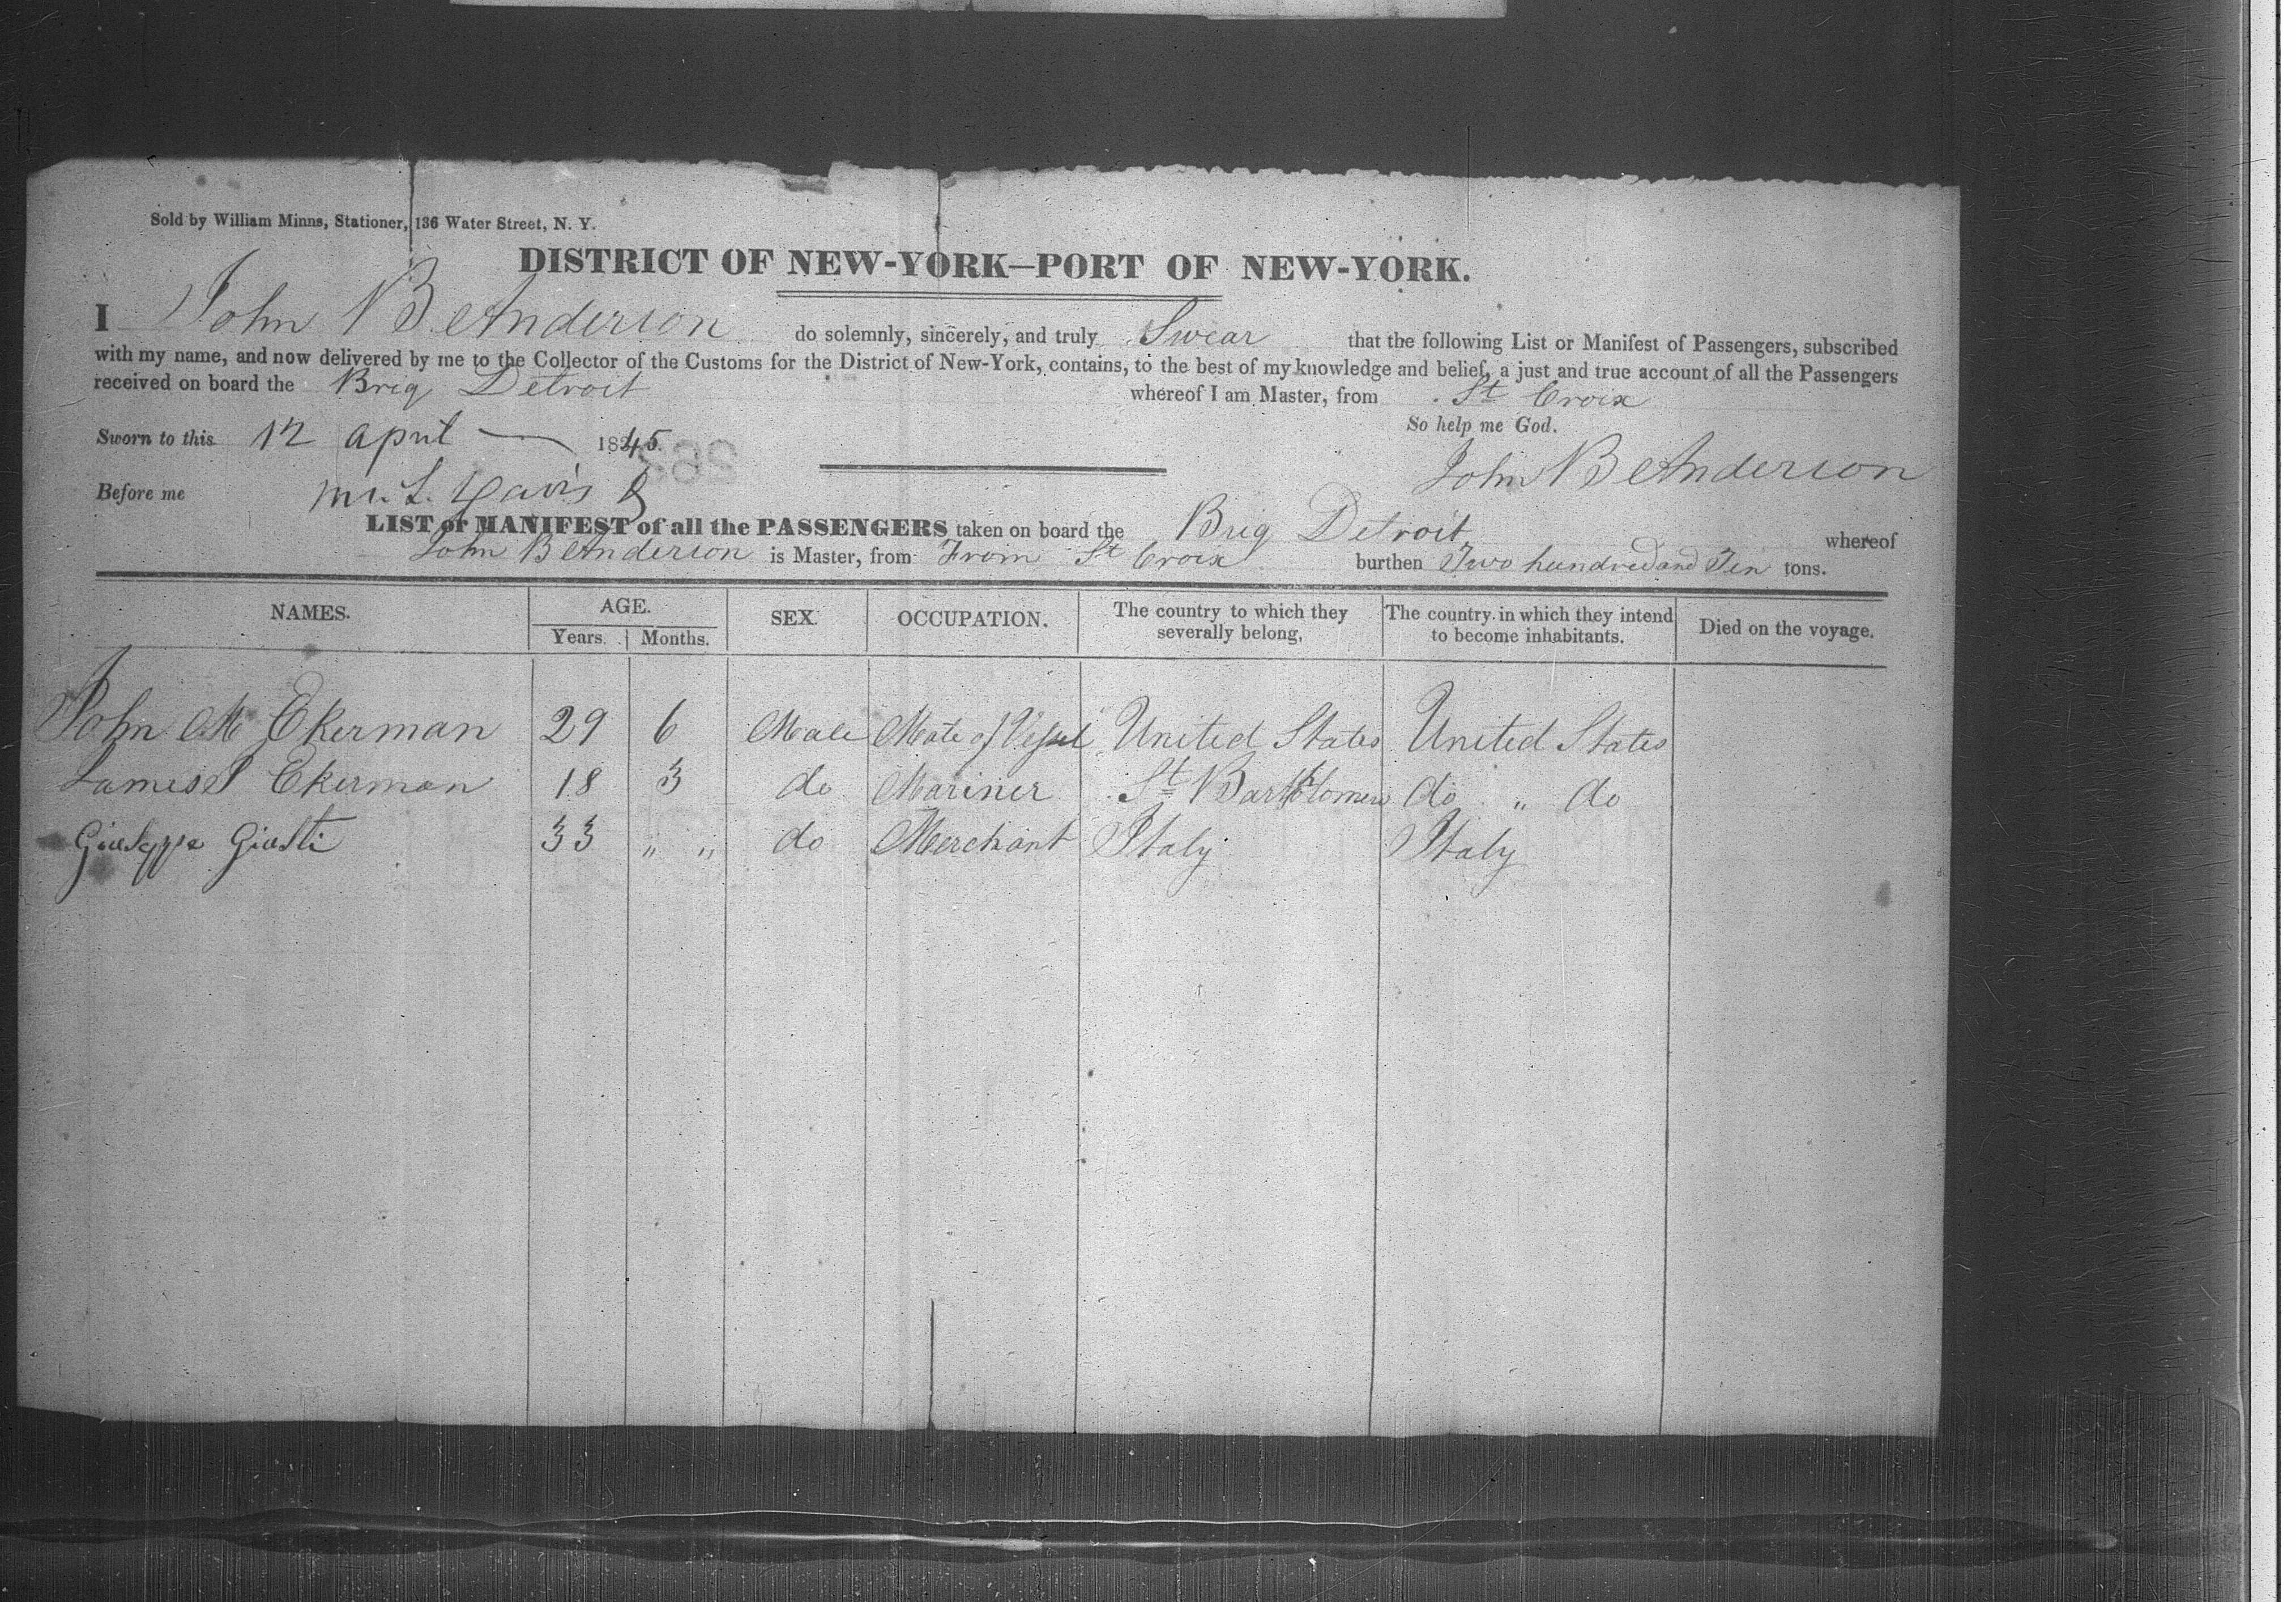 Sold by William Minns, Stationer, 136 Water Street, N. Y.
DISTRICT OF NEW-YORK—PORT OF NEW-YORK.
I John B Anderson do solemnly, sincerely, and truly Swear that the following List or Manifest of Passengers, subscribed
with my name, and now delivered by me to the Collector of the Customs for the District of New-York, contains, to the best of my knowledge and belief, a just and true account of all the Passengers
received on board the Brig Detroit whereof I am Master, from St Croix
So help me God.
Sworn to this 12 april 1845.
John B Anderson
Before me Davis
LIST or MANIFEST of all the PASSENGERS taken on board the Brig Detroit whereof
John B Anderson is Master, from From St Croix burthen Two hundred and Ten tons.
NAMES. AGE. Years. Months. SEX. OCCUPATION. The country to which they severally belong, The country in which they intend to become inhabitants. Died on the voyage.
John M Ekerman 29 6 Male Mate of Vessel United States United States
James Ekerman 18 3 do Mariner St Bartholomew do " do
Giuseppe Giusti 33 " " do Merchant Italy Italy